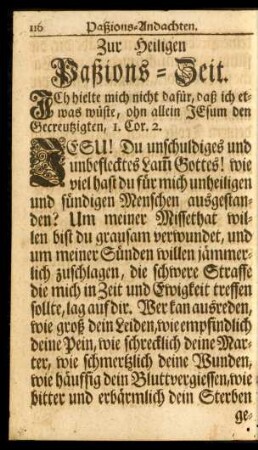 116 Paßions-Andachten.
Zur Heiligen
Paßions-Zeit.
ICh hielte mich nicht dafür, daß ich et-
was wüste, ohn allein JEsum den
Gecreutzigten, 1. Cor. 2.
JESU! Du unschuldiges und
unbeflecktes Lam̃ Gottes! wie
viel hast du für mich unheiligen
und sündigen Menschen ausgestan-
den? Um meiner Missethat wil-
len bist du grausam verwundet, und
um meiner Sünden willen jämmer-
lich zuschlagen, die schwere Straffe
die mich in Zeit und Ewigkeit treffen
sollte, lag auf dir. Wer kan ausreden,
wie groß dein Leiden, wie empfindlich
deine Pein, wie schrecklich deine Mar-
ter, wie schmertzlich deine Wunden,
wie häuffig dein Bluttvergiessen, wie
bitter und erbärmlich dein Sterben
ge-